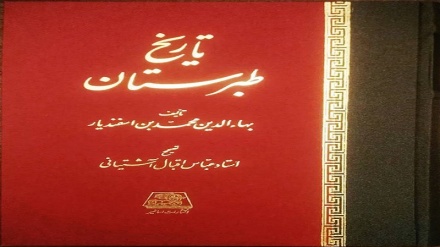 تاریخ
طبرستان
تألیف
بهاءالدین محمد بن اسفندیار
تصحیح
استاد عباس اقبال آشتیانی